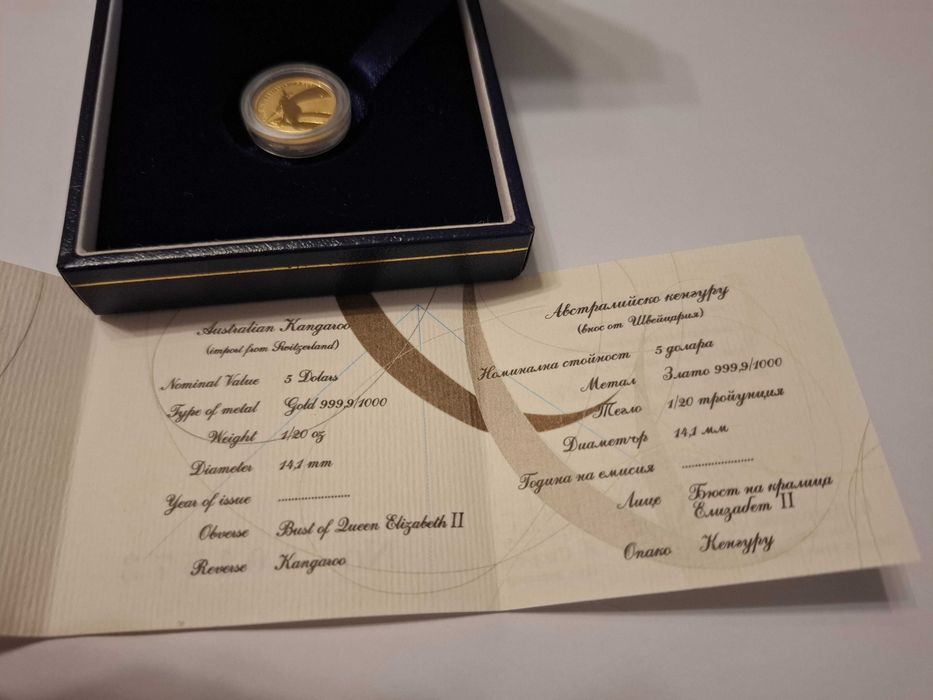 Australian Kangaroo
(import from Switzerland)
Nominal Value 5 Dolars
Type of metal Gold 999,9/1000
Weight 1/20 oz
Diameter 14,1 mm
Year of issue ......................
Obverse Bust of Queen Elizabeth II
Reverse Kangaroo
Австралийско кенгуру
(внос от Швейцария)
Номинална стойност 5 долара
Метал Злато 999,9/1000
Тегло 1/20 тройунция
Диаметър 14,1 мм
Година на емисия ......................
Лице Бюст на кралица
Елизабет II
Опако Кенгуру